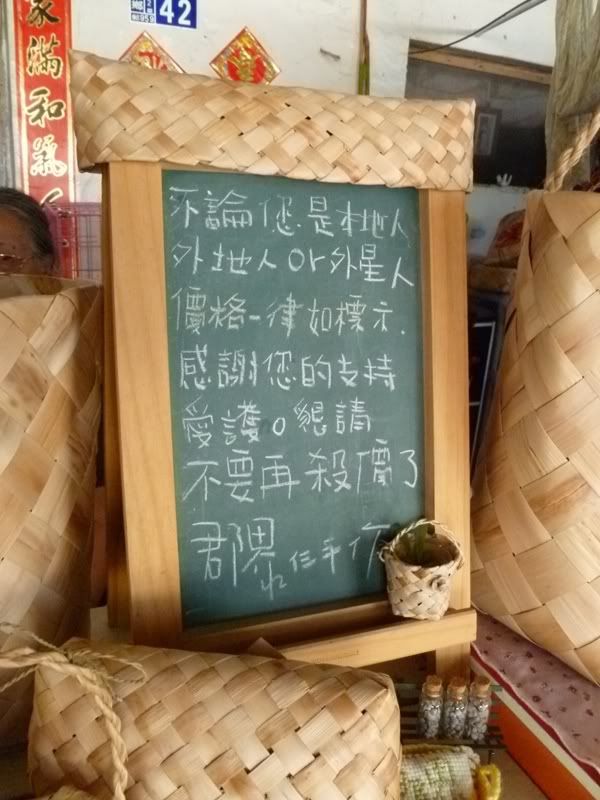 家滿和氣
42
不論您是本地人
外地人or外星人
價格一律如標示.
感謝您的支持
愛護。懇請
不要再殺價了
手作